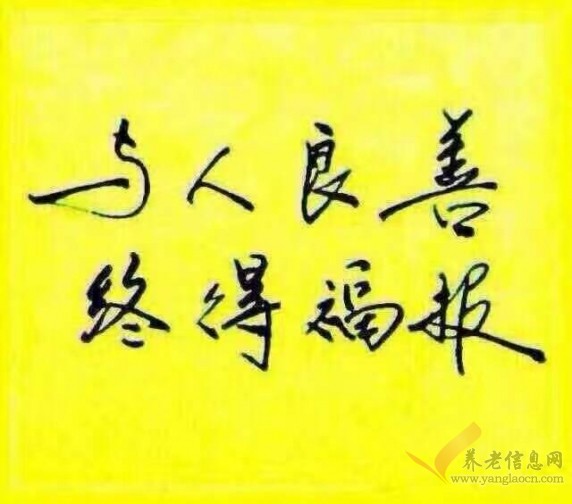 与人良善
终得福报
养老信息网
www.yanglaocn.com